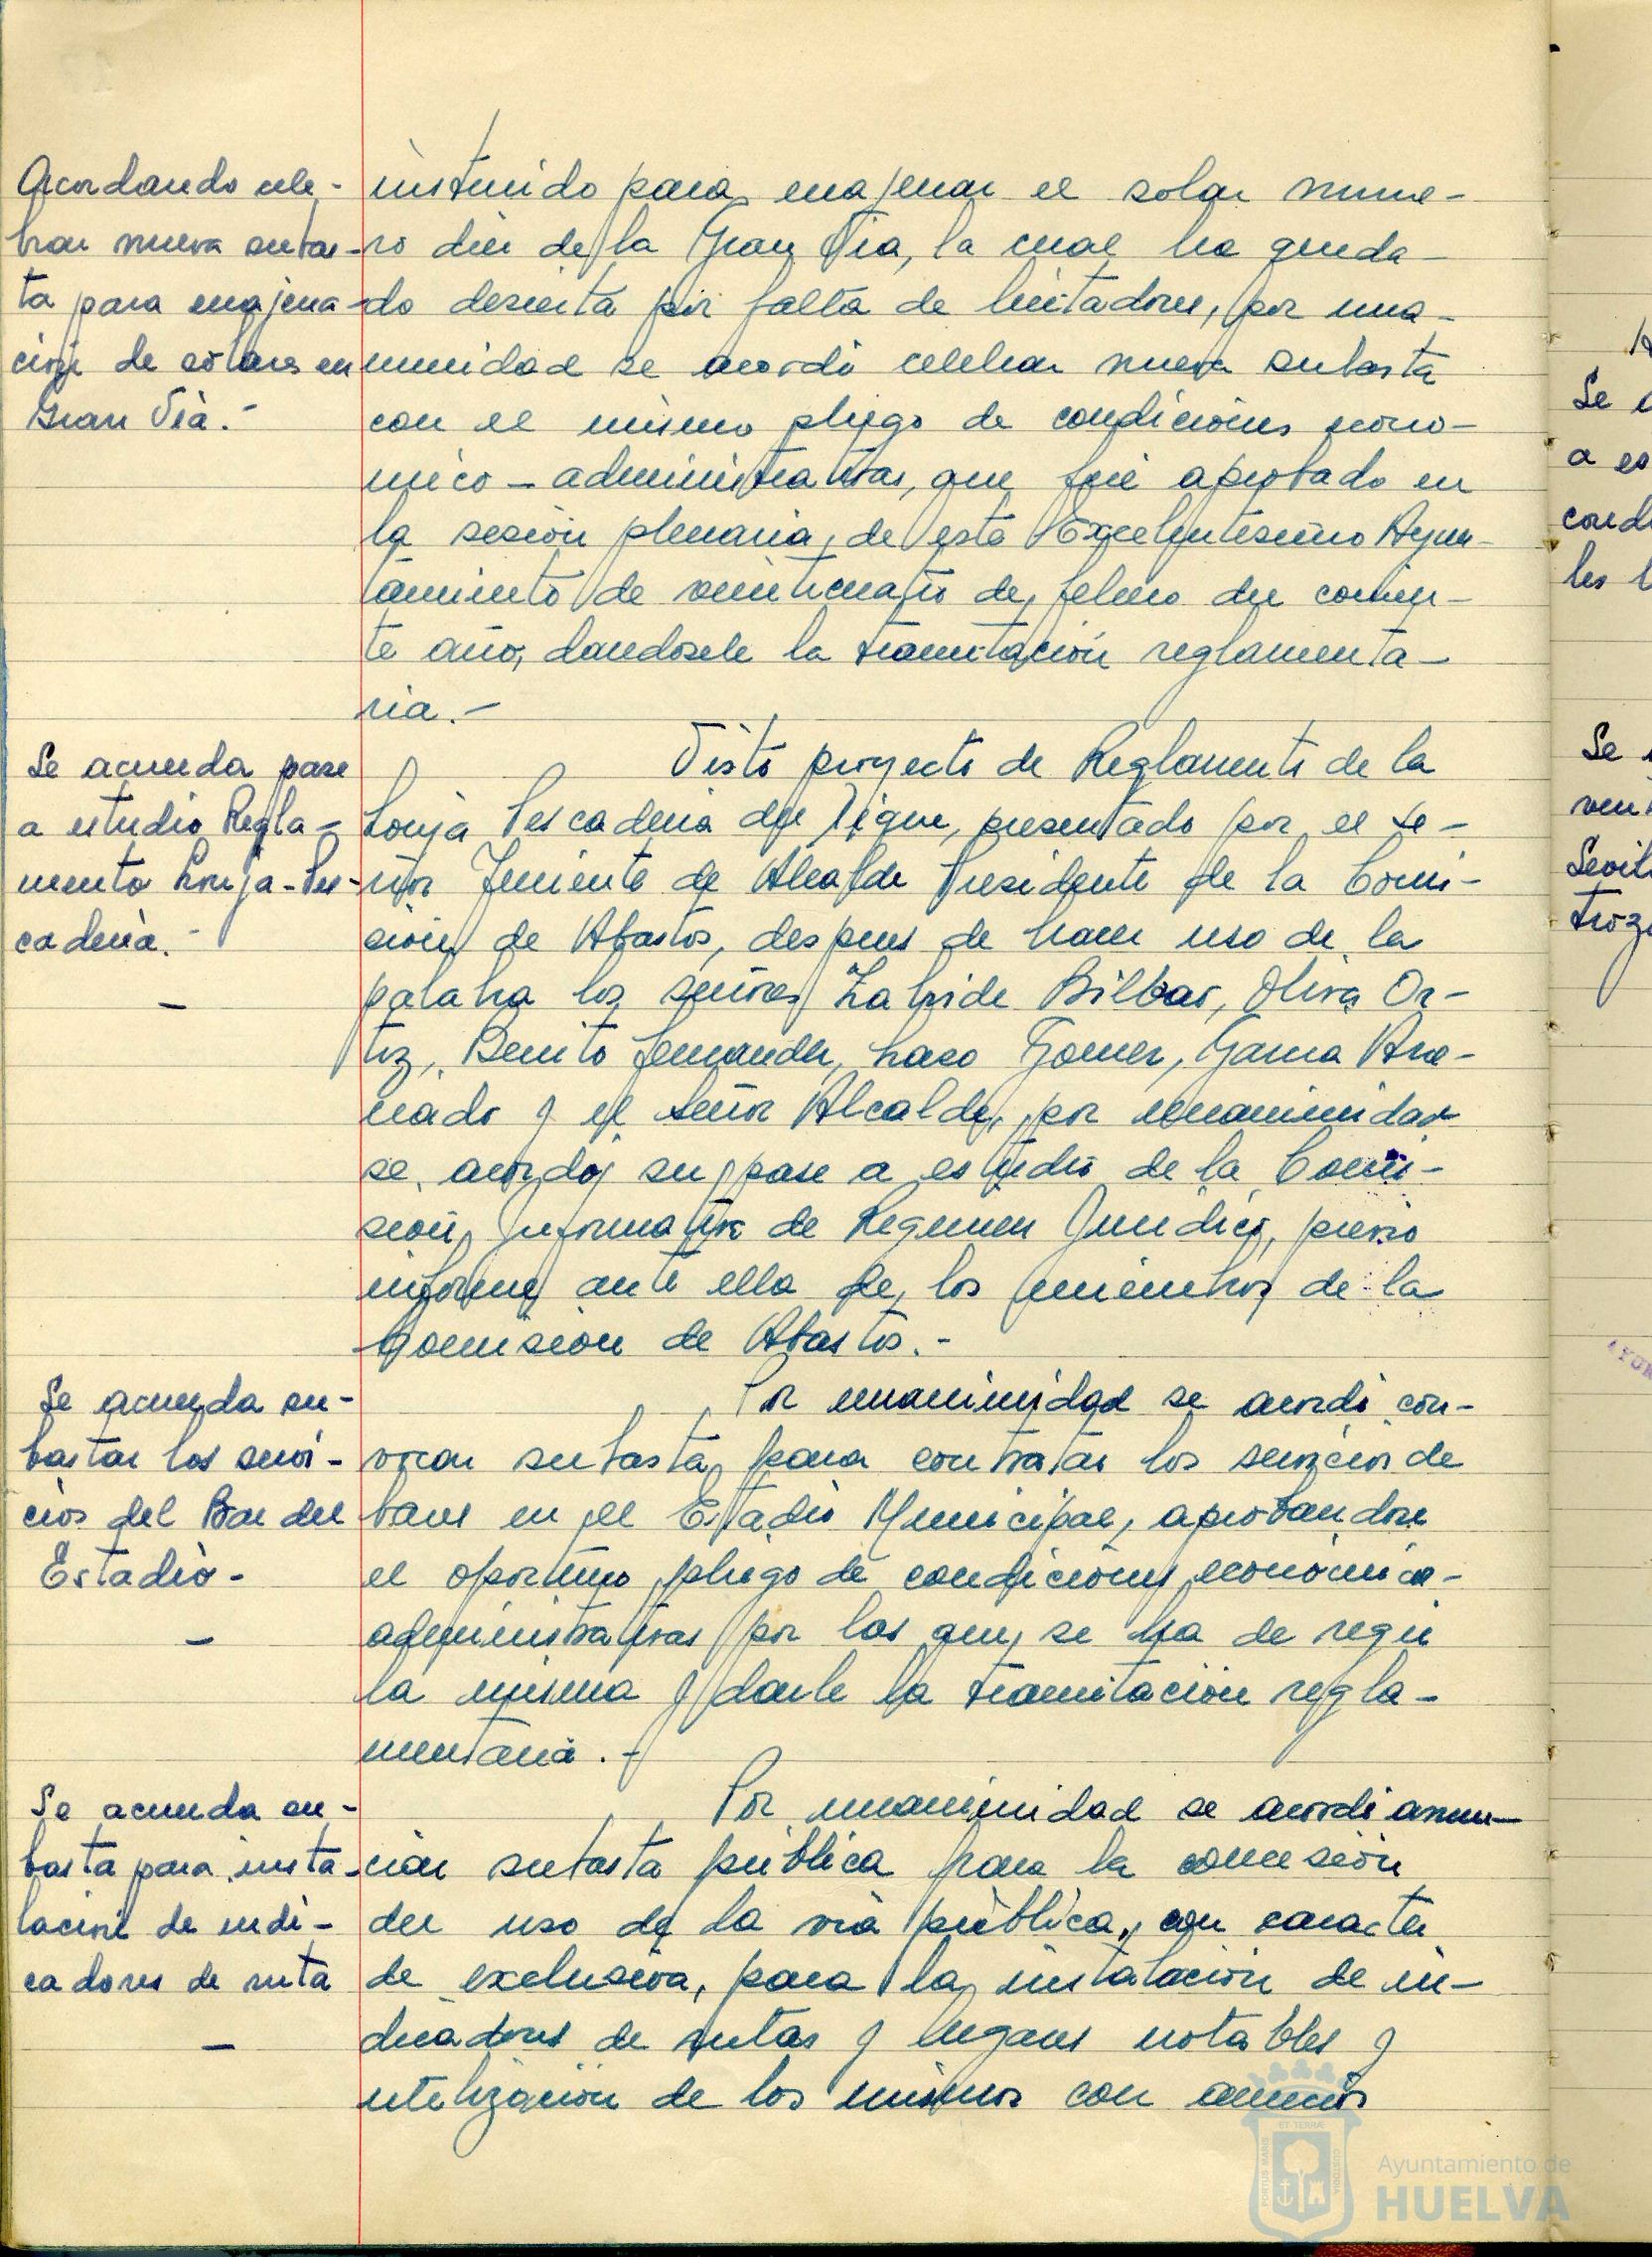 Acordando cele-
brar nueva subas-
ta para enajena-
ción de solares en
Gran Vía.-
instruido para enajenar el solar núme-
ro diez de la Gran Vía, la cual ha queda-
do desierta por falta de licitadores, por una-
nimidad se acordó celebrar nueva subasta
con el mismo pliego de condiciones econó-
mico-administrativas, que fué aprobado en
la sesión plenaria, de este Excelentísimo Ayun-
tamiento de veinticuatro de febrero del corrien-
te año, dandosele la tramitación reglamenta-
ria.-
Se acuerda pase
a estudio Regla-
mento Lonja-Pes-
cadería.-
Visto proyecto de Reglamento de la
Lonja Pescadería del Dique, presentado por el Se-
ñor Teniente de Alcalde Presidente de la Comi-
sión de Abastos, despues de hacer uso de la
palabra los señores Zalvide Bilbao, Oliva Or-
tiz, Benito Fernandez, Lazo Gomez, Garcia
y el Señor Alcalde, por unanimidad
se acordó su pase a estudio de la Comi-
sión Informativa de Regimen Juridico, previo
informe ante ella de los miembros de la
Comisión de Abastos.-
Se acuerda su-
bastar los servi-
cios del Bar del
Estadio-
Por unanimidad se acordó con-
vocar subasta para contratar los servicios de
bares en el Estadio Municipal, aprobandose
el oportuno pliego de condiciones económico-
administrativas por las que se ha de regir
la misma y darle la tramitación regla-
mentaria.-
Se acuerda su-
basta para insta-
lación de indi-
cadores de ruta
Por unanimidad se acordó anun-
ciar subasta pública para la concesión
del uso de la vía pública, con caracter
de exclusiva, para la instalación de in-
dicadores de rutas y lugares notables y
utilización de los mismos con anuncios
Se
a es
cond
les
Se
ven
Sevil
troz
Ayuntamiento de
HUELVA